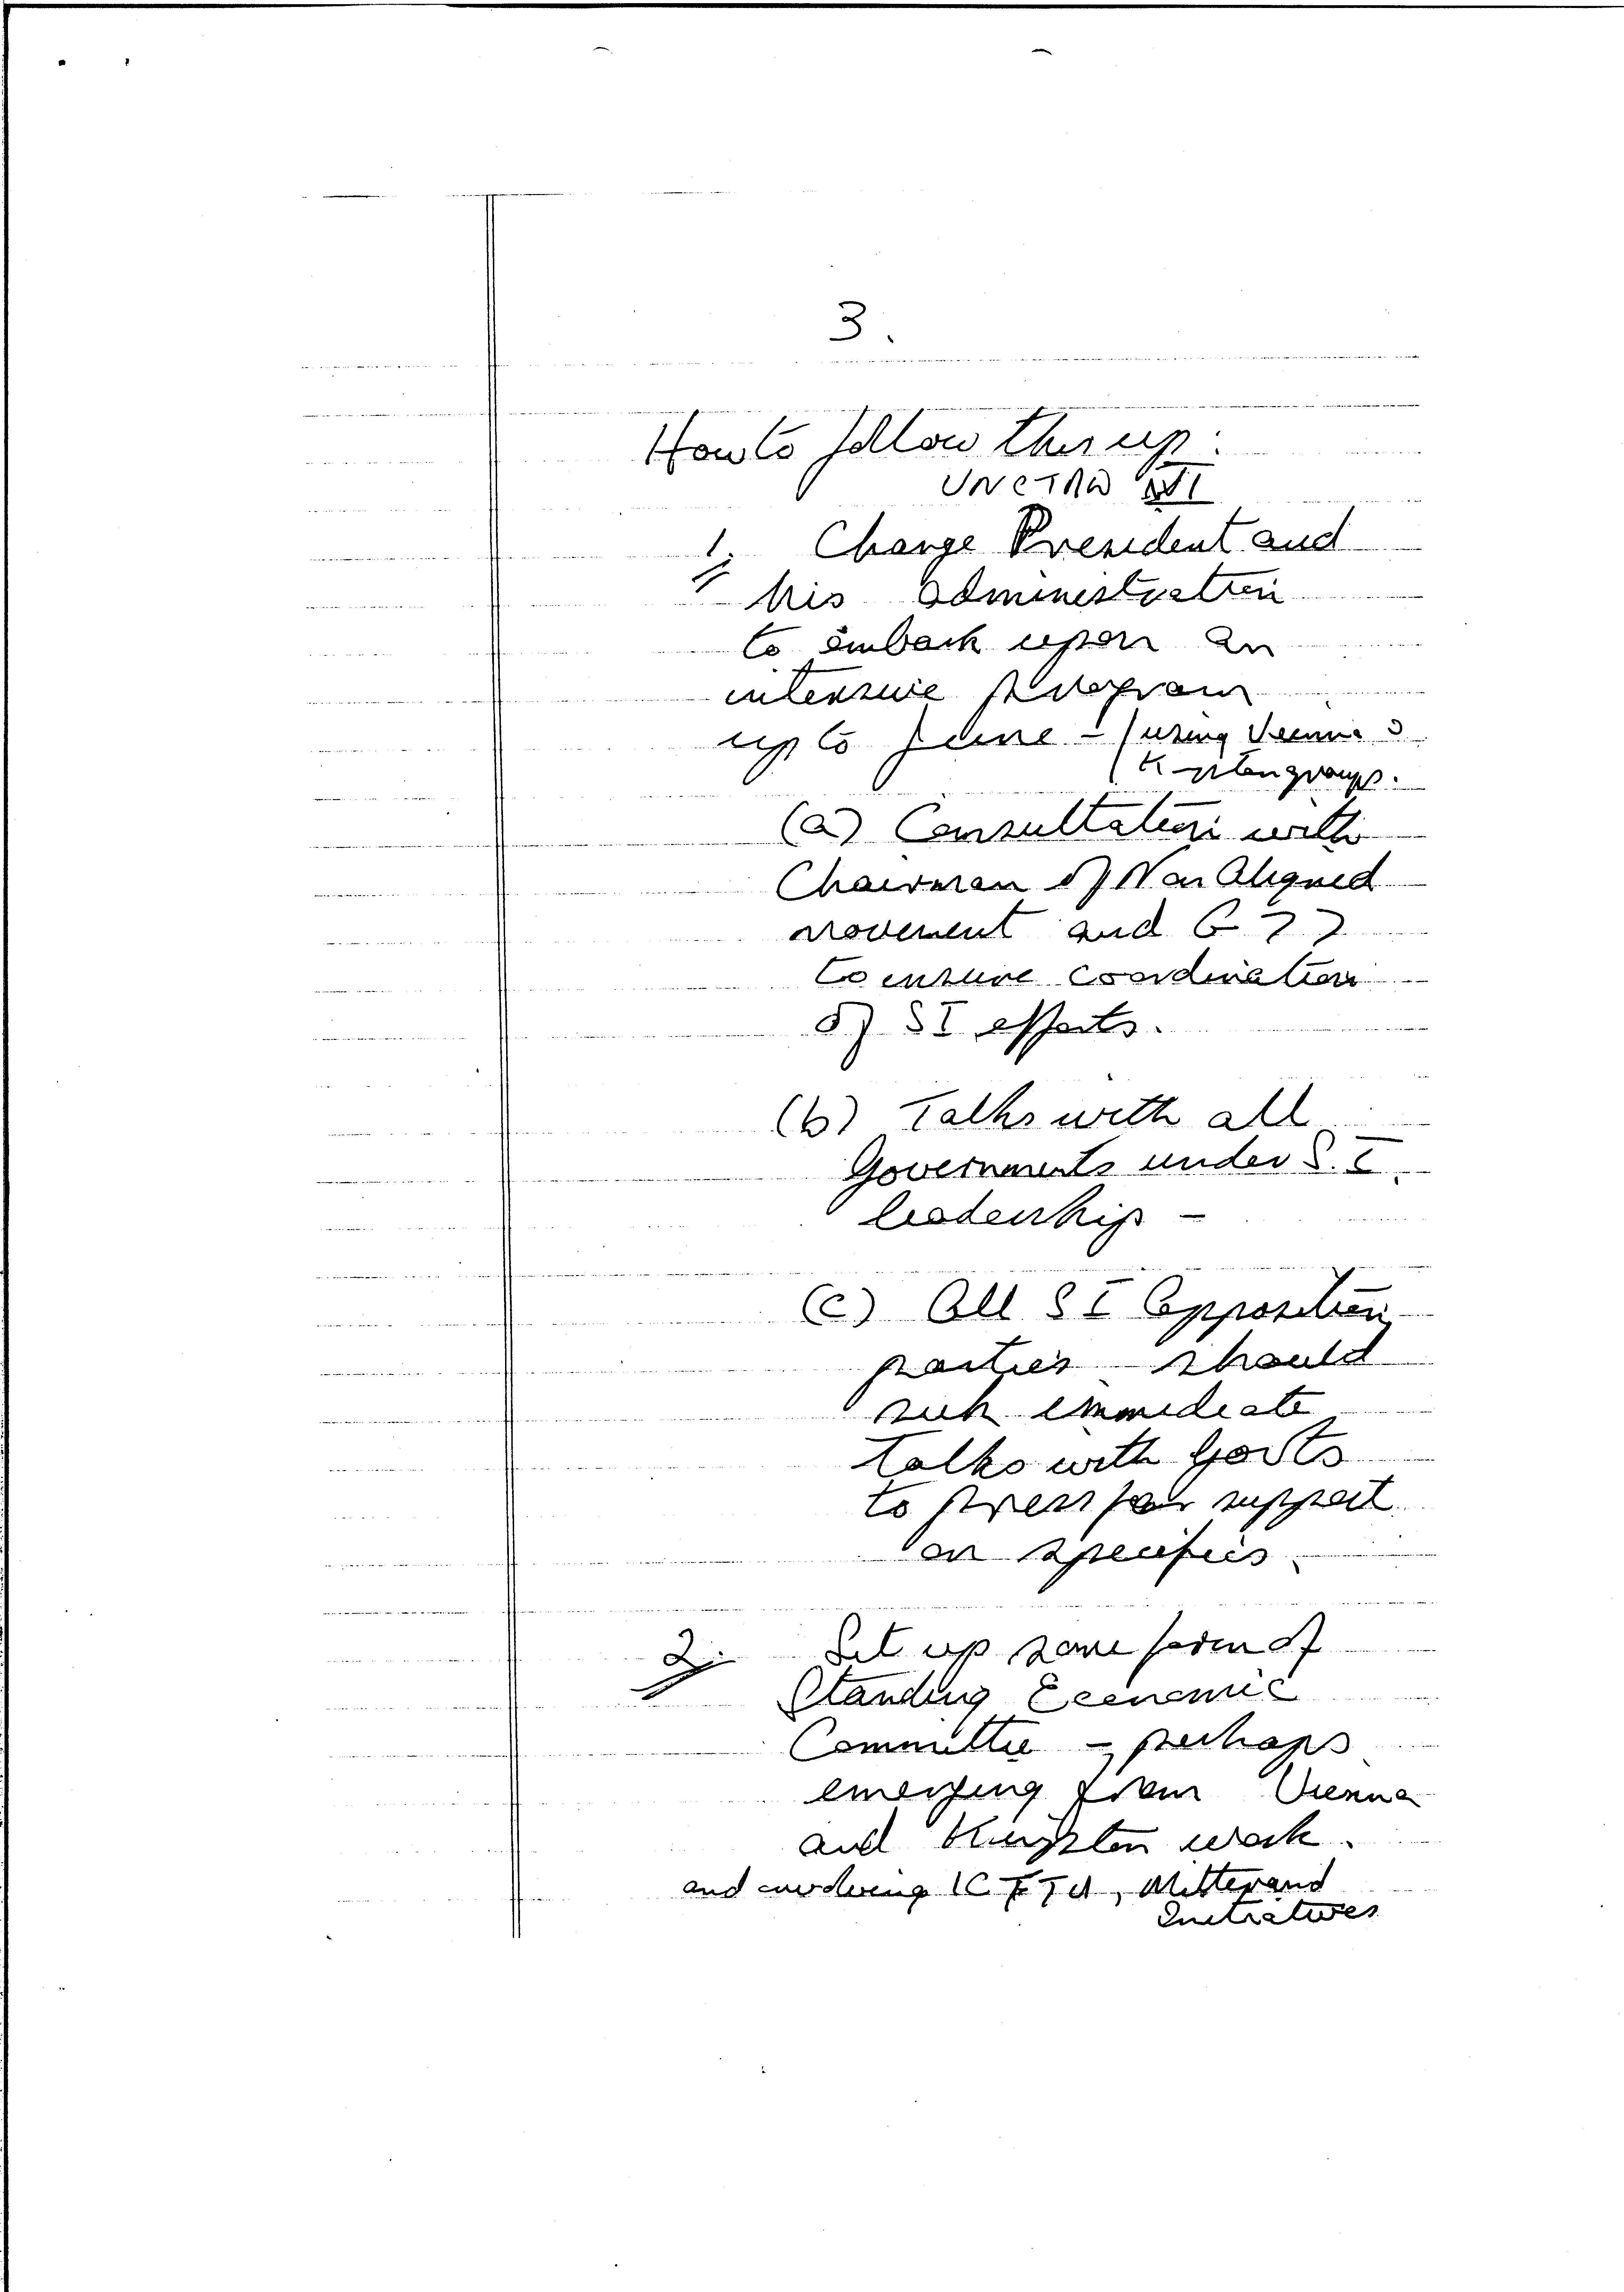 3.
How to follow this up:
UNCTAD VI
1. Charge President and
his administration
to embark upon an
intensive program
up to June - (using Vienna &
Kingston groups.
(a) Consultation with
Chairman of Non Aligned
movement and G 77
to ensure coordination
of SI efforts.
(b) Talks with all
Governments under S.I.
leadership -
(c) All SI Opposition
parties should
seek immediate
talks with Govts
to press for support
on specifics.
2. Set up some form of
Standing Economic
Committee - perhaps
emerging from Vienna
and Kingston work.
and involving ICFTU, Mitterand
Initiatives